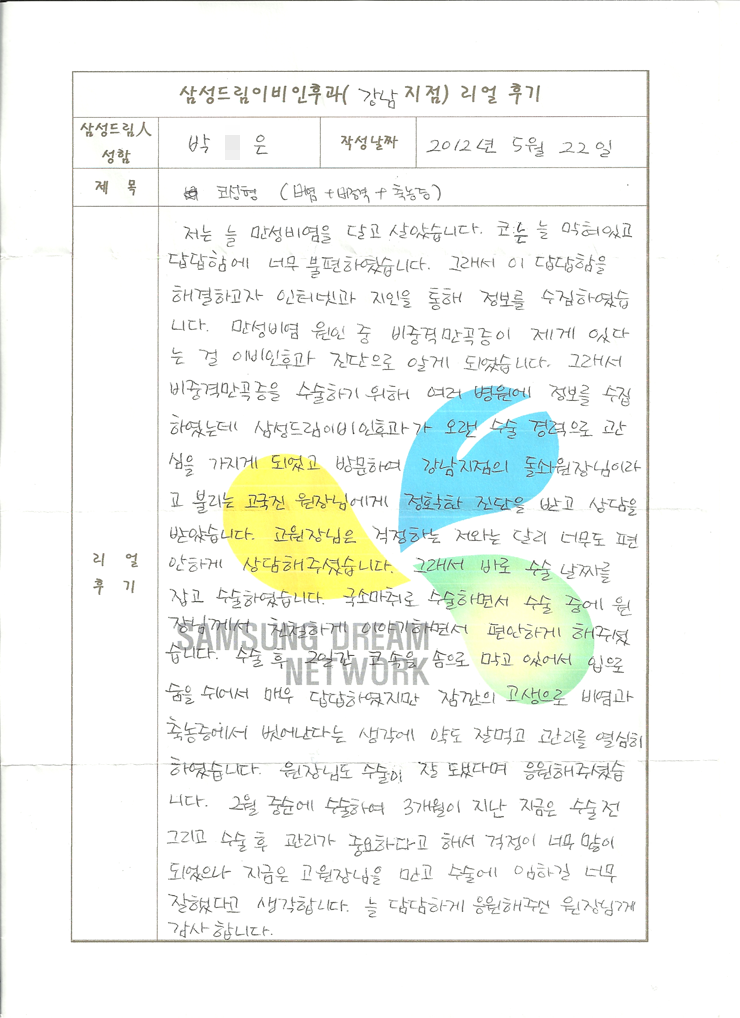 삼성드림이비인후과( 강남 지점) 리얼 후기
삼성드림人 성함
박 은
작성날짜
2012년 5월 22일
제 목
코성형 (비염 + 비중격 + 축농증)
리 얼 후 기
저는 늘 만성비염을 달고 살았습니다. 코는 늘 막혀있고
답답함에 너무 불편하였습니다. 그래서 이 답답함을
해결하고자 인터넷과 지인을 통해 정보를 수집하였습
니다. 만성비염 원인 중 비중격만곡증이 제게 있다
는 걸 이비인후과 진단으로 알게 되었습니다. 그래서
비중격만곡증을 수술하기 위해 여러 병원에 정보를 수집
하였는데 삼성드림이비인후과가 오랜 수술 경력으로 관
심을 가지게 되었고 방문하여 강남지점의 돌쇠원장님이라
고 불리는 고국진 원장님에게 정확한 진단을 받고 상담을
받았습니다. 고원장님은 걱정하는 저와는 달리 너무도 편
안하게 상담해주셨습니다. 그래서 바로 수술 날짜를
잡고 수술하였습니다. 국소마취로 수술하면서 수술 중에 원
장님께서 친절하게 이야기하면서 편안하게 해주셨
습니다. 수술 후 2일간 코 속을 솜으로 막고 있어서 입으로
숨을 쉬어서 매우 답답하였지만 잠깐의 고생으로 비염과
축농증에서 벗어난다는 생각에 약도 잘먹고 관리를 열심히
하였습니다. 원장님도 수술이 잘 됐다며 응원해주셨습
니다. 2월 중순에 수술하여 3개월이 지난 지금은 수술전
그리고 수술 후 관리가 중요하다고 해서 걱정이 너무 많이
되었으나 지금은 고원장님을 만고 수술에 임하길 너무
잘했다고 생각합니다. 늘 담담하게 응원해주신 원장님께
감사 합니다.
SAMSUNG DREAM
NETWORK